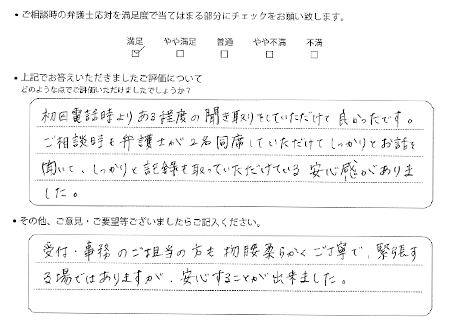 ・ご相談時の弁護士応対を満足度で当てはまる部分にチェックをお願い致します。
満足 やや満足 普通 やや不満 不満
・上記でお答えいただきましたご評価について
どのような点でご評価いただけましたでしょうか？
初回電話時よりある程度の聞き取りをしていただけて良かったです。
ご相談時も弁護士が2名同席していただけてしっかりとお話を
聞いて、しっかりと記録を取っていただけている安心感がありま
した。
・その他、ご意見・ご要望等ございましたらご記入ください。
受付・事務のご担当の方も物腰柔らかくご丁寧で、緊張す
る場ではありますが、安心することが出来ました。